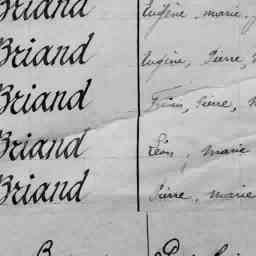 Briand Eugène, marie,
Briand Eugène, Pierre,
Briand Pierre,
Briand Léon, marie
Briand Pierre, marie